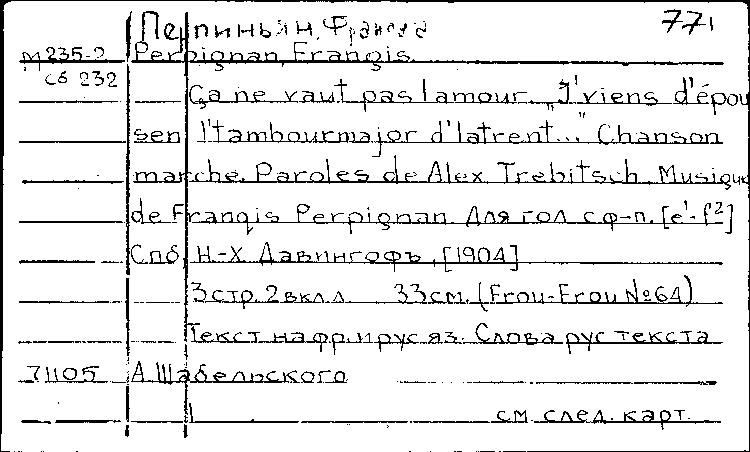 Перпиньян, Франсуа 771
М 235-2 Perpignan, Franqis.
сб 232
Ça ne vaut pas lamour. „J'viens d'épou
sen l'tambourmajor d'latrent..." Chanson
marche. Paroles de Alex Trebitsch. Musique
de Franqis Perpignan. Для гол с ф-п. [e¹-f²]
Спб, Н-Х Давингофъ, [1904]
3 стр. 2 вкл л. 33 см. (Frou-Frou № 64)
Текст на фр. и рус яз. Слова рус текста
71105 А. Шабельского
см. след. карт.